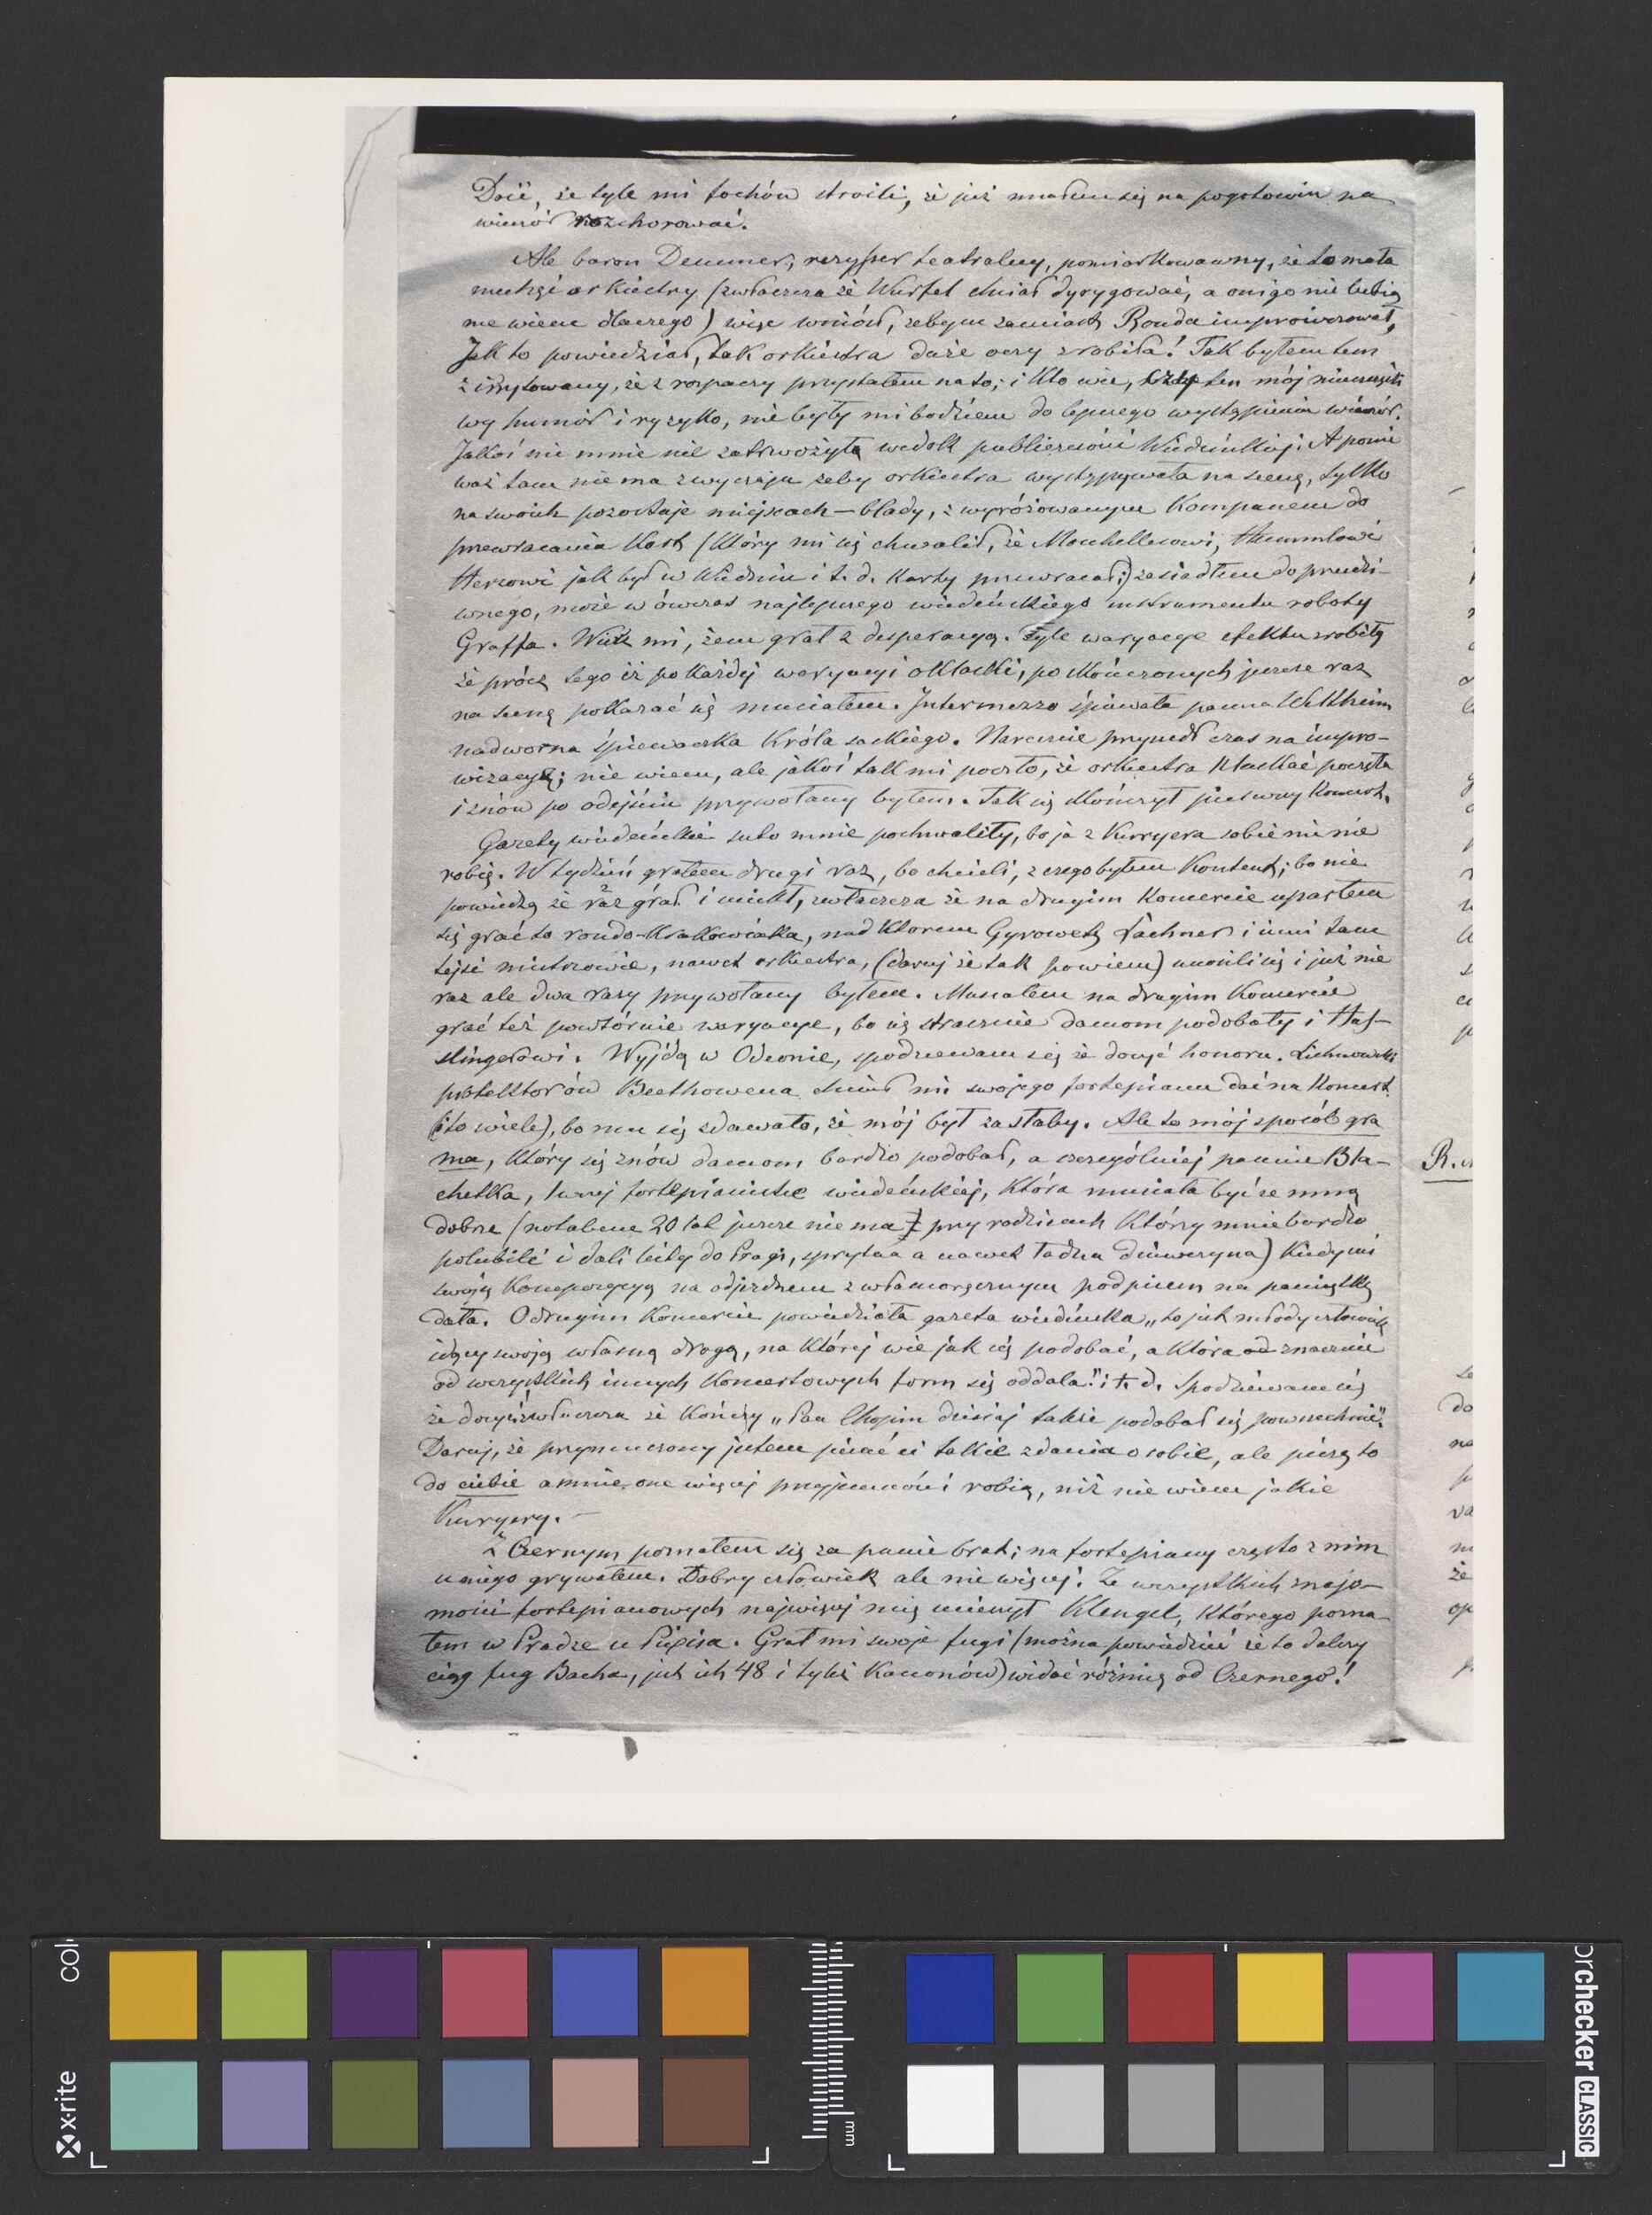 Dość, że tyle mi fochów stroili, że już miałem się na pogotowiu na
wieczór rozchorować.
Ale baron Demmer, reżyser teatralny, pomiarkowawszy, że to mała
niechęć orkiestry (zwłaszcza że Würfel chciał dyrygować, a oni go nie lubią
nie wiem dlaczego) więc wniósł, żebym zamiast Ronda improwizował,
Jak to powiedział, tak orkiestra duże oczy zrobiła! Tak byłem tem
zirrytowany, że z rozpaczy przystałem na to; i kto wie, czy ten mój nieszczęśli
wy humor i ryzyko, nie były mi bodźcem do lepszego wystąpienia wieczór.
Jakoś nie mnie nie zatrwożyła widok publiczności Wiedeńskiej. A ponie
waż tam nie ma zwyczaju żeby orkiestra występywała na scenę, tylko
na swoich pozostaje miejscach — blady, z wyróżowanym kompanem do
przewracania kart (który mi się chwalił, że Moschellesowi, Hummlowi
Herzowi jak był w Wiedniu i t. d. karty przewracał;) zasiadłem do prześli-
cznego, może w ówczas najlepszego wiedeńskiego instrumentu roboty
Graffa. Wierz mi, żem grał z desperacyą. Tyle waryacye efektu zrobiły
że prócz tego iż po każdej waryacyi oklaski, po skończonych jeszcze raz
na scenę pokazać się musiałem. Intermezzo śpiewała panna Veltheim
nadworna śpiewaczka Króla saskiego. Nareszcie przyszedł czas na impro-
wizacyę; nie wiem, ale jakoś tak mi poszło, że orkiestra klaskać poczęła
i znów po odejściu przywołany byłem. Tak się skończył pierwszy koncert.
Gazety wiedeńskie suto mnie pochwaliły, bo ja z Kurryera sobie nic nie
robię. W tydzień grałem drugi raz, bo chcieli, z czego byłem kontent; bo nie
powiedzą że raz grał i uciekł, zwłaszcza że na drugim koncercie uparłem
się grać to rondo-Krakowiaka, nad którem Gyrowetz Lachner i inni tam
tejsi mistrzowie, nawet orkiestra, (daruj że tak powiem) unosili się i już nie
raz ale dwa razy przywołany byłem. Musiałem na drugim koncercie
grać też powtórnie waryacye, bo się strasznie damom podobały i Has-
slingerowi. Wyjdą w Odeonie, spodziewam się że dosyć honoru. Lichnowski
protektor ów Beethowena chciał mi swojego fortepianu dać na koncert
(to wiele), bo mu się zdawało, że mój był za słaby. Ale to mój sposób gra
nia, który się znów damom bardzo podobał, a szczególniej pannie Bla-
chetka, 1wszej fortepianistce wiedeńskiej, która musiała być ze mną
dobrze (notabene 20 lat jeszcze nie ma przy rodzicach którzy mnie bardzo
polubili i dali listy do Pragi, sprytna a nawet ładna dziewczyna) kiedy mi
swoję kompozycyą na odjezdnem z własnoręcznym podpisem na pamiątkę
dała. O drugim koncercie powiedziała gazeta wiedeńska „to jest młody człowiek
idący swoją własną drogą, na której wie jak się podobać, a która od znacznie
od wszystkich innych koncertowych form się oddala." i t. d. Spodziewam się
że dosyć, zwłaszcza że kończy „Pan Chopin dzisiaj także podobał się powszechnie".
Daruj, że przymuszony jestem pisać ci takie zdania o sobie, ale piszę to
do ciebie a mnie one więcej przyjemności robią, niż nie wiem jakie
Kuryery. —
Z Czernym poznałem się za panie brat; na fortepiany często z nim
u niego grywałem. Dobry człowiek ale nic więcej. Ze wszystkich znajo-
mości fortepianowych najwięcej mię ucieszył Klengel, którego pozna
łem w Pradze u Pixisa. Grał mi swoje fugi (można powiedzieć że to dalszy
ciąg fug Bacha, jest ich 48 i tyleż kanonów) widać różnicę od Czernego!
x-rite
colorchecker CLASSIC
mm